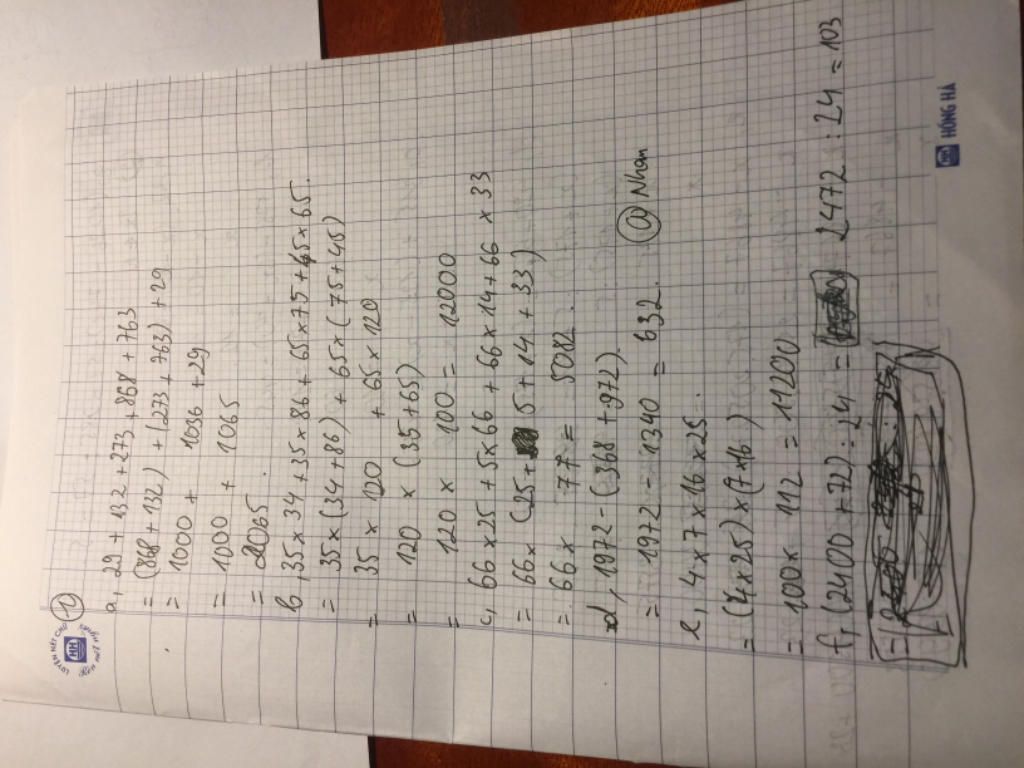 LUYỆN NÉT CHỮ
HH
①
a, 29 + 132 + 273 + 868 + 763
= (868 + 132) + (273 + 763) + 29
= 1000 + 1036 + 29
= 1000 + 1065
= 2065.
b, 35 x 34 + 35 x 86 + 65 x 75 + 45 x 65.
= 35 x (34 + 86) + 65 x (75 + 45)
= 35 x 120 + 65 x 120
= 120 x (35 + 65)
= 120 x 100 = 12000
c, 66 x 25 + 5 x 66 + 66 x 14 + 66 x 33
= 66 x (25 + 5 + 14 + 33)
= 66 x 77 = 5082.
d, 1972 - (368 + 972)
= 1972 - 1340 = 632.
@ Nhan
e, 4 x 7 x 16 x 25.
= (4 x 25) x (7 x 16)
= 100 x 112 = 11200
f, (2400 + 72) : 24 = 2472 : 24 = 103
HH HỒNG HÀ